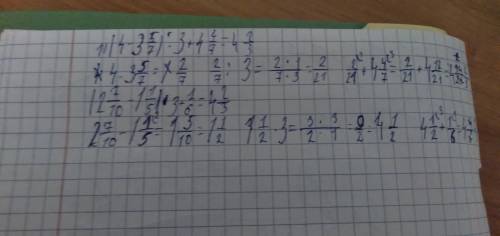 1) (4-3 5/7) : 3+4 4/7=4 2/3
4-3 5/7= 2/7   2/7 : 3 = 2·1/7·3=2/21   2/21+4 4/7=2/21+4 12/21=
(2 7/10-1 1/5)·3+1/6=4 2/3
2 7/10-1 1/5=1 5/10=1 1/2   1 1/2·3=3/2·3/1=9/2=4 1/2   4 1/2+1/6=